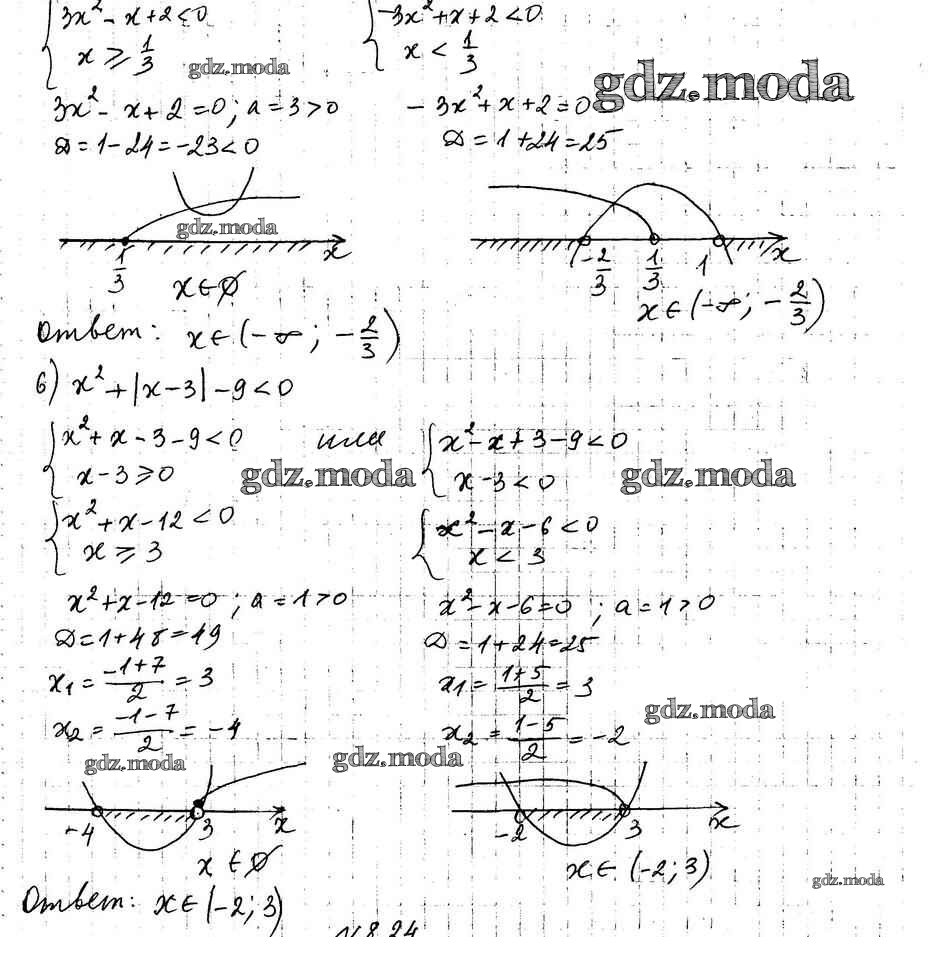 3x² - x + 2 < 0
x ≥ 1/3
-3x² + x + 2 < 0
x < 1/3
gdz.moda
gdz.moda
3x² - x + 2 = 0; a = 3 > 0
D = 1 - 24 = -23 < 0
-3x² + x + 2 = 0
D = 1 + 24 = 25
gdz.moda
1/3
x
x ∈ ∅
-2/3
1/3
1
x
x ∈ (-∞; -2/3)
Ответ: x ∈ (-∞; -2/3)
б) x² + |x - 3| - 9 < 0
x² + x - 3 - 9 < 0
x - 3 ≥ 0
или
x² - x + 3 - 9 < 0
x - 3 < 0
gdz.moda
gdz.moda
x² + x - 12 < 0
x ≥ 3
x² - x - 6 < 0
x < 3
x² + x - 12 = 0; a = 1 > 0
D = 1 + 48 = 49
x₁ = (-1+7)/2 = 3
x₂ = (-1-7)/2 = -4
x² - x - 6 = 0; a = 1 > 0
D = 1 + 24 = 25
x₁ = (1+5)/2 = 3
x₂ = (1-5)/2 = -2
gdz.moda
gdz.moda
gdz.moda
-4
3
x
x ∈ ∅
-2
3
x
x ∈ (-2; 3)
gdz.moda
Ответ: x ∈ (-2; 3)